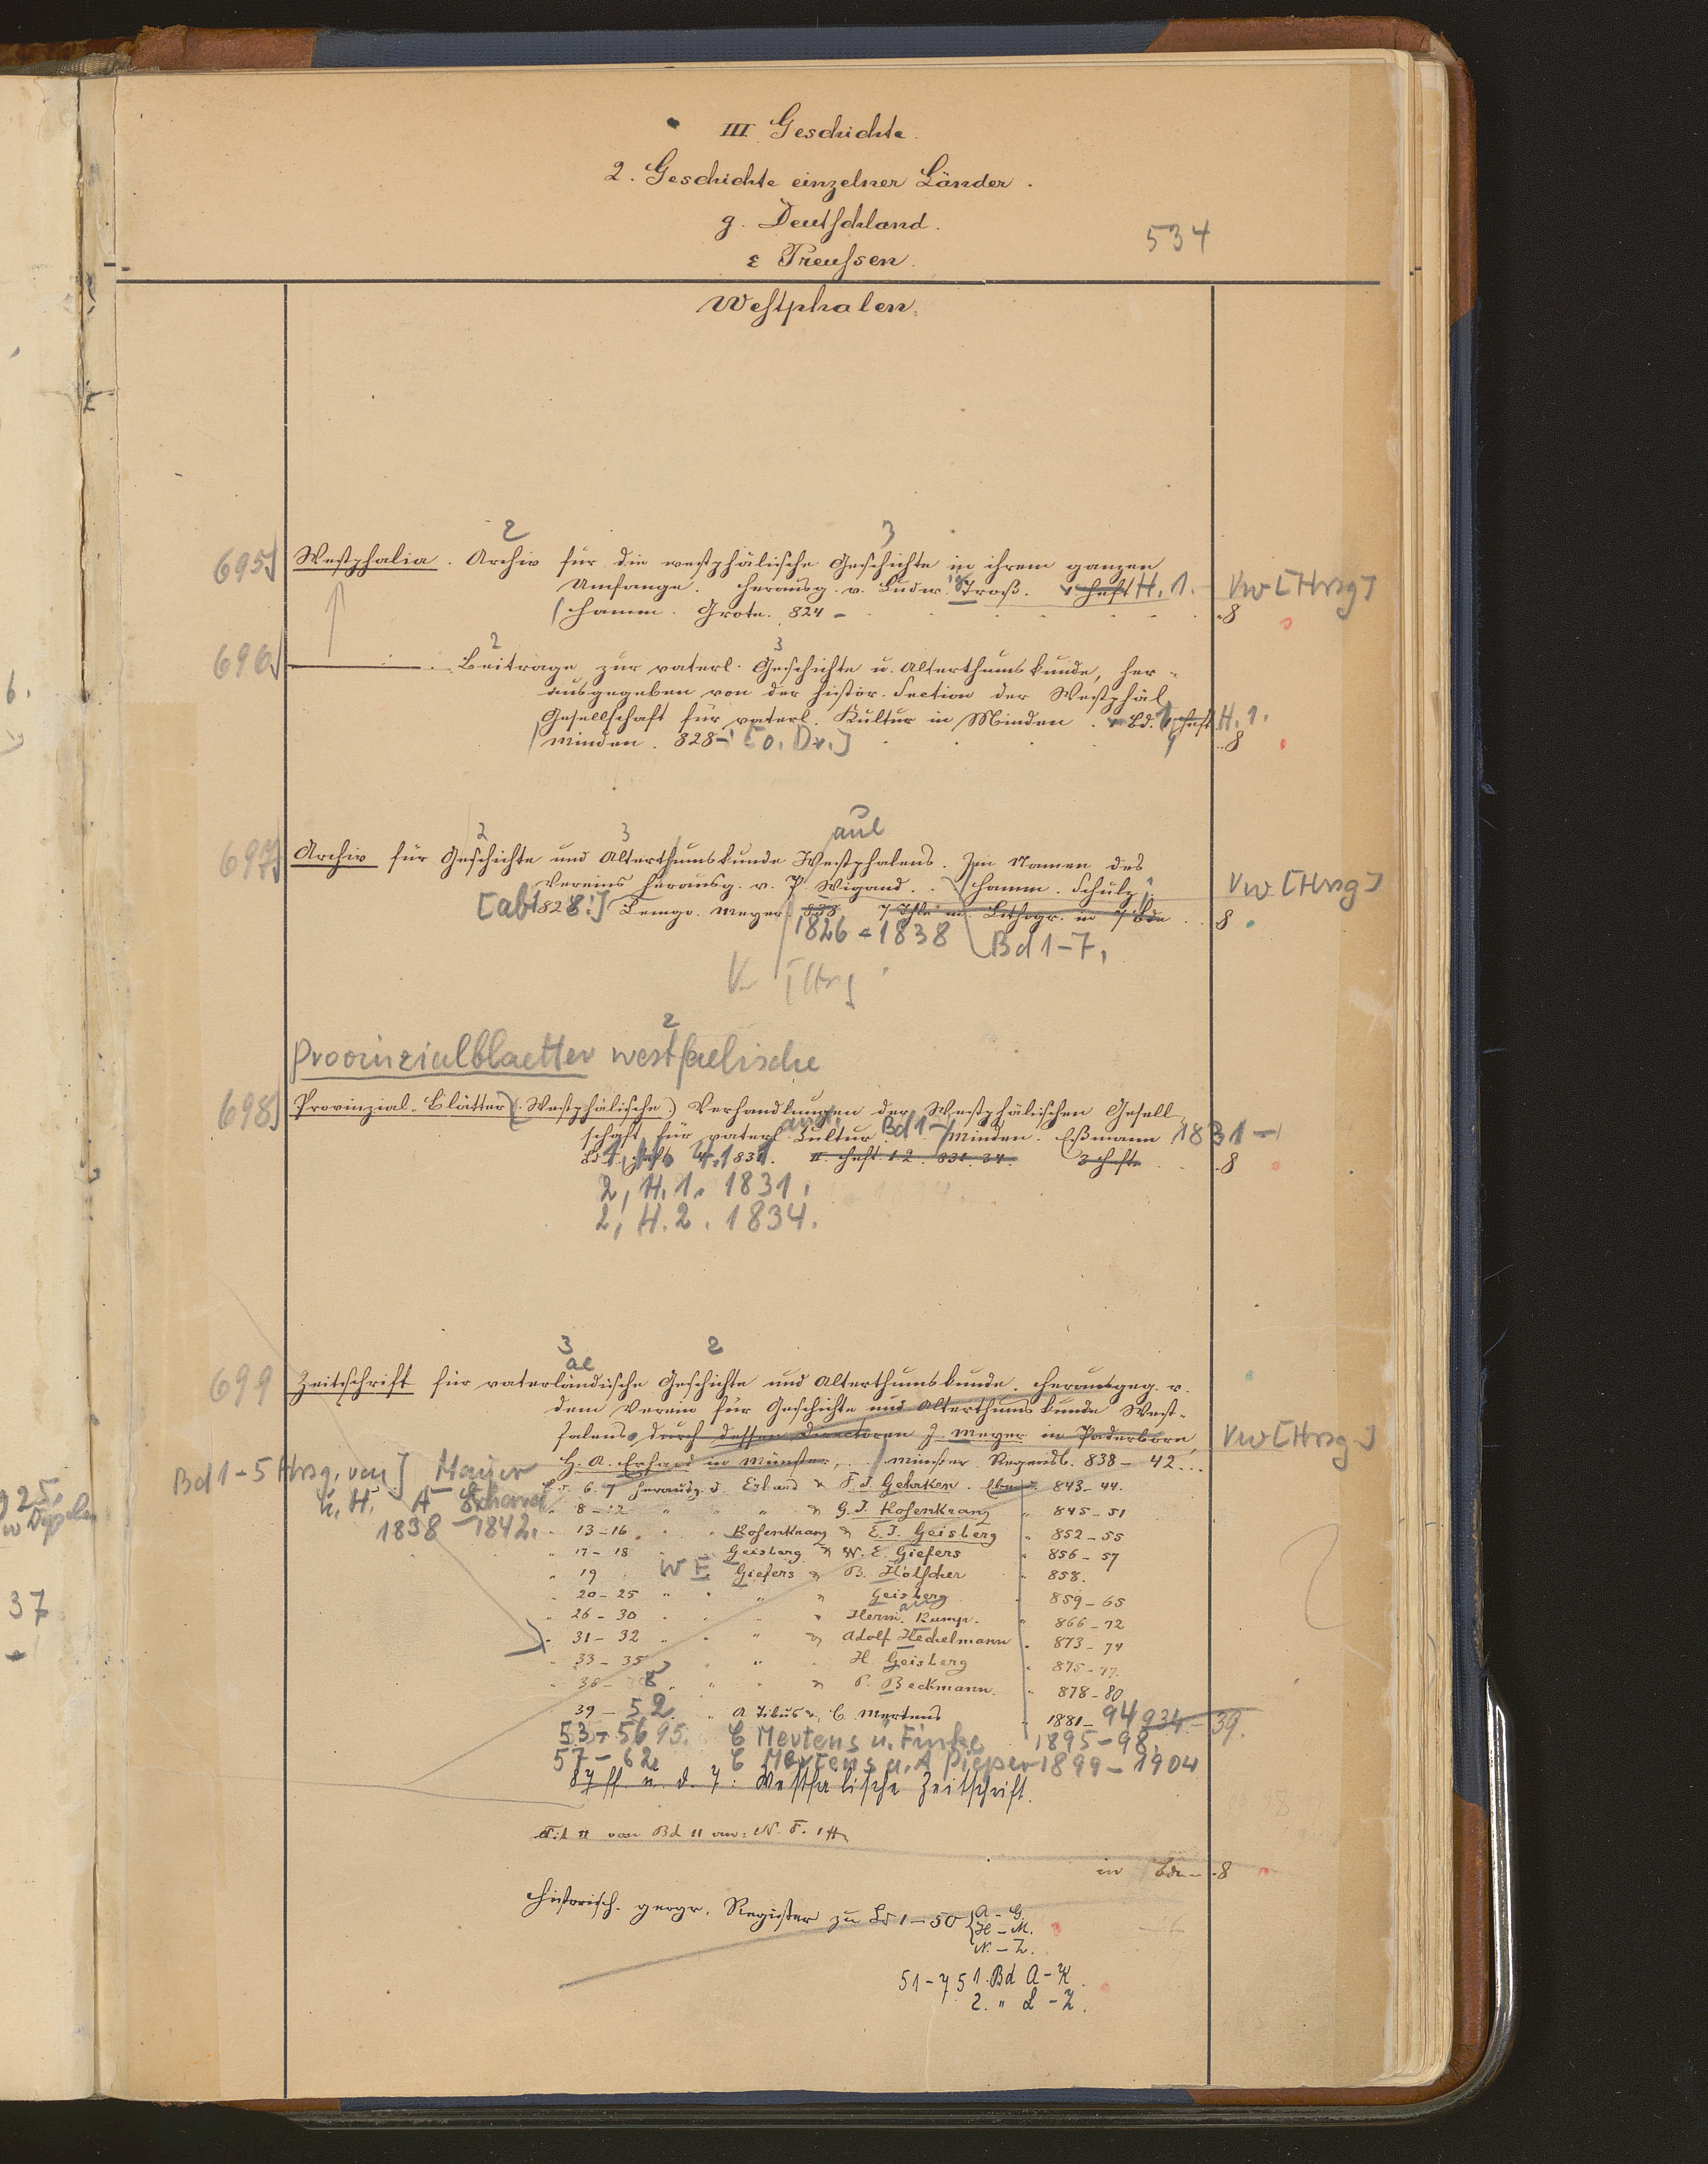 III Geschichte.
2. Geschichte einzelner Länder.
g. Deutschland.
534
ε Preussen.
Westphalen.
2 3
695] Westphalia. Archiv für die westphälische Geschichte in ihrem ganzen
Umfange. Herausg. v. Ludw. Troß. Heft H. 1. Vw [Hrsg]
Hamm. Grote. 824 – 8
2 3
696] ——— . Beiträge zur vaterl. Geschichte u. Alterthumskunde, her-
ausgegeben von der histor. Section der Westphäl.
Gesellschaft für vaterl. Kultur in Minden. Bd. 1, Heft H. 1.
Minden. 828 – [o. Dr.] 8
2 3 aul
697] Archiv für Geschichte und Alterthumskunde Westphalens. Im Namen des
Vereins herausg. v. P. Wigand. Hamm. Schulz Vw [Hrsg]
[ab 1828:] Lemgo. Meyer. 838 7 Thle m. Lithogr. in 7 Bde 8
1826 – 1838 Bd 1–7,
2
Provinzialblaetter westfaelische
698] Provinzial-Blätter (Westphälische) Verhandlungen der Westphälischen Gesell-
schaft für vaterl. Cultur. Bd 1 – Minden. Eßmann 1831 –
1, H. 4. 1831. II. Heft 1.2. 831. 34. 3 Hefte 8
2, H. 1. 1831.
2, H. 2. 1834.
3 2
ae
699 Zeitschrift für vaterländische Geschichte und Alterthumskunde. Herausgeg. v.
dem Verein für Geschichte und Alterthumskunde West-
falens durch dessen Directoren J. Meyer in Paderborn, Vw [Hrsg]
H. A. Erhard in Münster, Münster Regensb. 838 – 42
Bd 1–5 Hrsg. von] Meyer
u. H. A Erhard
1838 – 1842.
6. 7 herausg. d. Erhard & F. J. Gehrken. 843–44.
" 8–12 " " " & G. J. Rosenkranz " 845–51
" 13–16 " " Rosenkranz & C. J. Geisberg " 852–55
" 17–18 " Geisberg & W. E. Giefers " 856–57
" 19 W E Giefers & B. Hölscher " 858.
" 20–25 " " " & Geisberg " 859–65
" 26–30 " " " " Herm. Rump. " 866–72
" 31–32 " " " & Adolf Hechelmann " 873–74
" 33–35 " " " H. Geisberg " 875–77.
" 36–38 " " " & P. Beckmann. " 878–80
39–52. " A Tibus & C. Mertens " 1881–94 934–39.
53–56 95. C Mertens u. Finke 1895–98.
57–62 C Mertens u. A Pieper 1899–1904
87 ff u. d. T: Westfalische Zeitschrift.
von Bd 11 an: N. F. 1 ff
in Bdn 8
Historisch-geogr. Register zu Bd 1–50 { A–G.
H–M.
N–Z.
51–75 1. Bd A–K.
2. " L–Z.